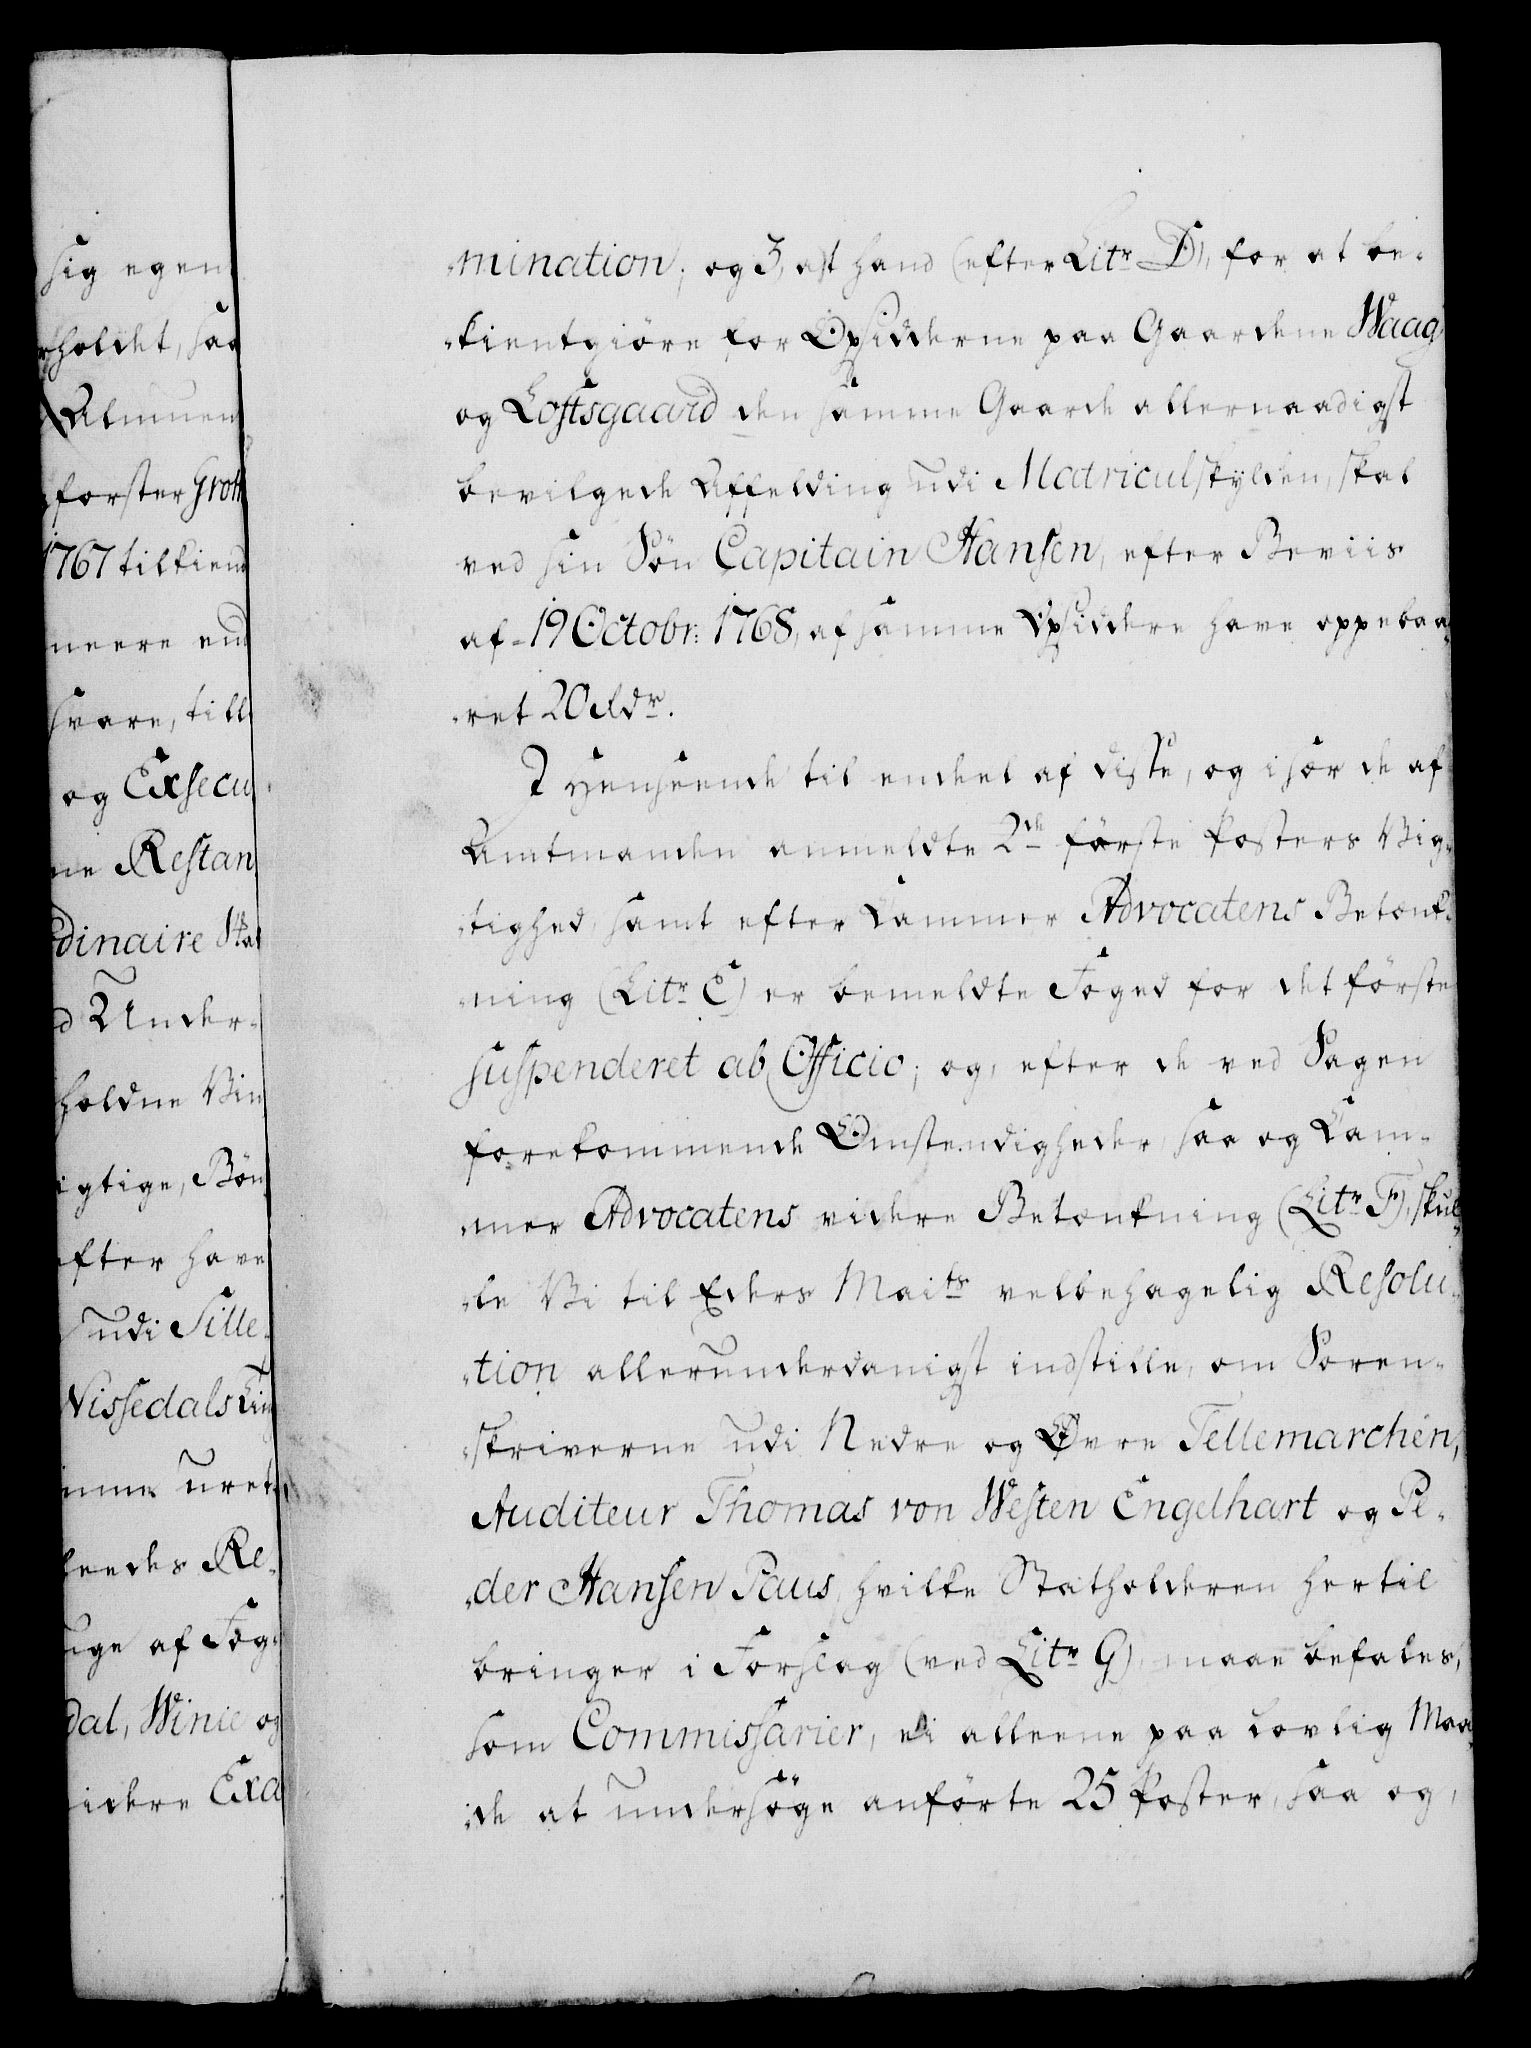 sig egen
rholdet, saa
Almuen
forster Groth
1767 tilkiend
meere end
svare, till
og Exsecu
ne Restan
dinaire Skat
d Under-
holdne Vin
igtige, Bön
efter have
udi Sille-
Nissedals Tin
mme uret-
heeds Re-
uge af Fog-
dal, Winie og
idere Exa
-mination; og 3, at hand (efter Litr D), for at be-
-kientgiöre for Opsidderne paa Gaardene Waag
og Loftsgaard den samme Gaarde allernaadigst
bevilgede Affelding udi Matriculskylden, skal
ved sin Sön Capitain Hansen, efter Beviis
af 19 Octobr: 1768, af samme Opsiddere have oppebaa-
-ret 20 Rdr.
I Henseende til endeel af disse, og i sær de af
Amtmanden anmeldte 2de förste Posters Vig-
-tighed, samt efter Cammer Advocatens Betænk-
-ning (Litr E) er bemeldte Foged for det förste
suspenderet ab Officio; og, efter de ved Sagen
forekommende Omstendigheder, saa og Cam-
-mer Advocatens videre Betænkning (Litr F), skul-
-le Vi til Eders Maits velbehagelig Resolu-
-tion allerunderdanigst indstille, om Soren-
-skriverne udi Nedre og Øvre Tellemarchen,
Auditeur Thomas von Westen Engelhart og Pe-
-der Hansen Paus, hvilke Statholderen hertil
bringer i Forslag (ved Litr G), maae befales,
som Commissarier, ei alleene paa lovlig Maa-
-de at undersöge anförte 25 Poster, saa og,